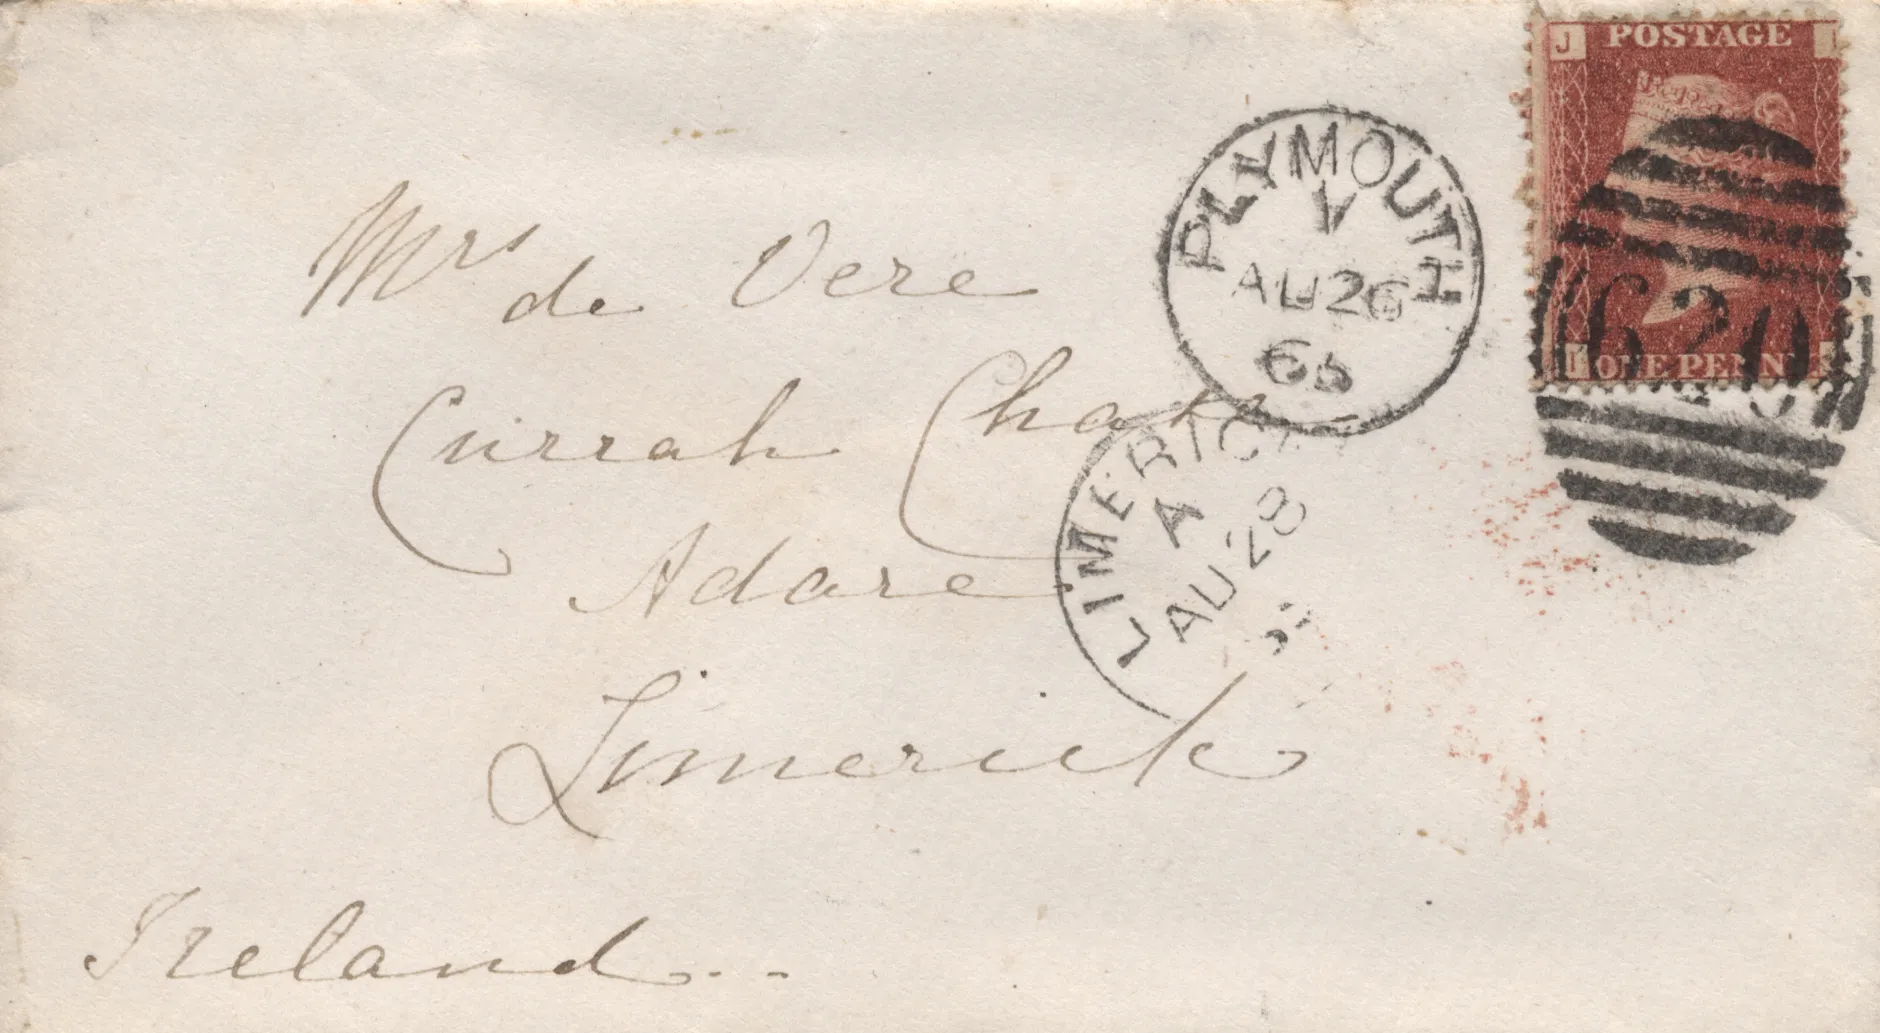 J POSTAGE I
ONE PENNY
620
PLYMOUTH
V
AU 26
65
LIMERICK
A
AU 28
Mrs de Vere
Currah Chase
Adare
Limerick
Ireland..